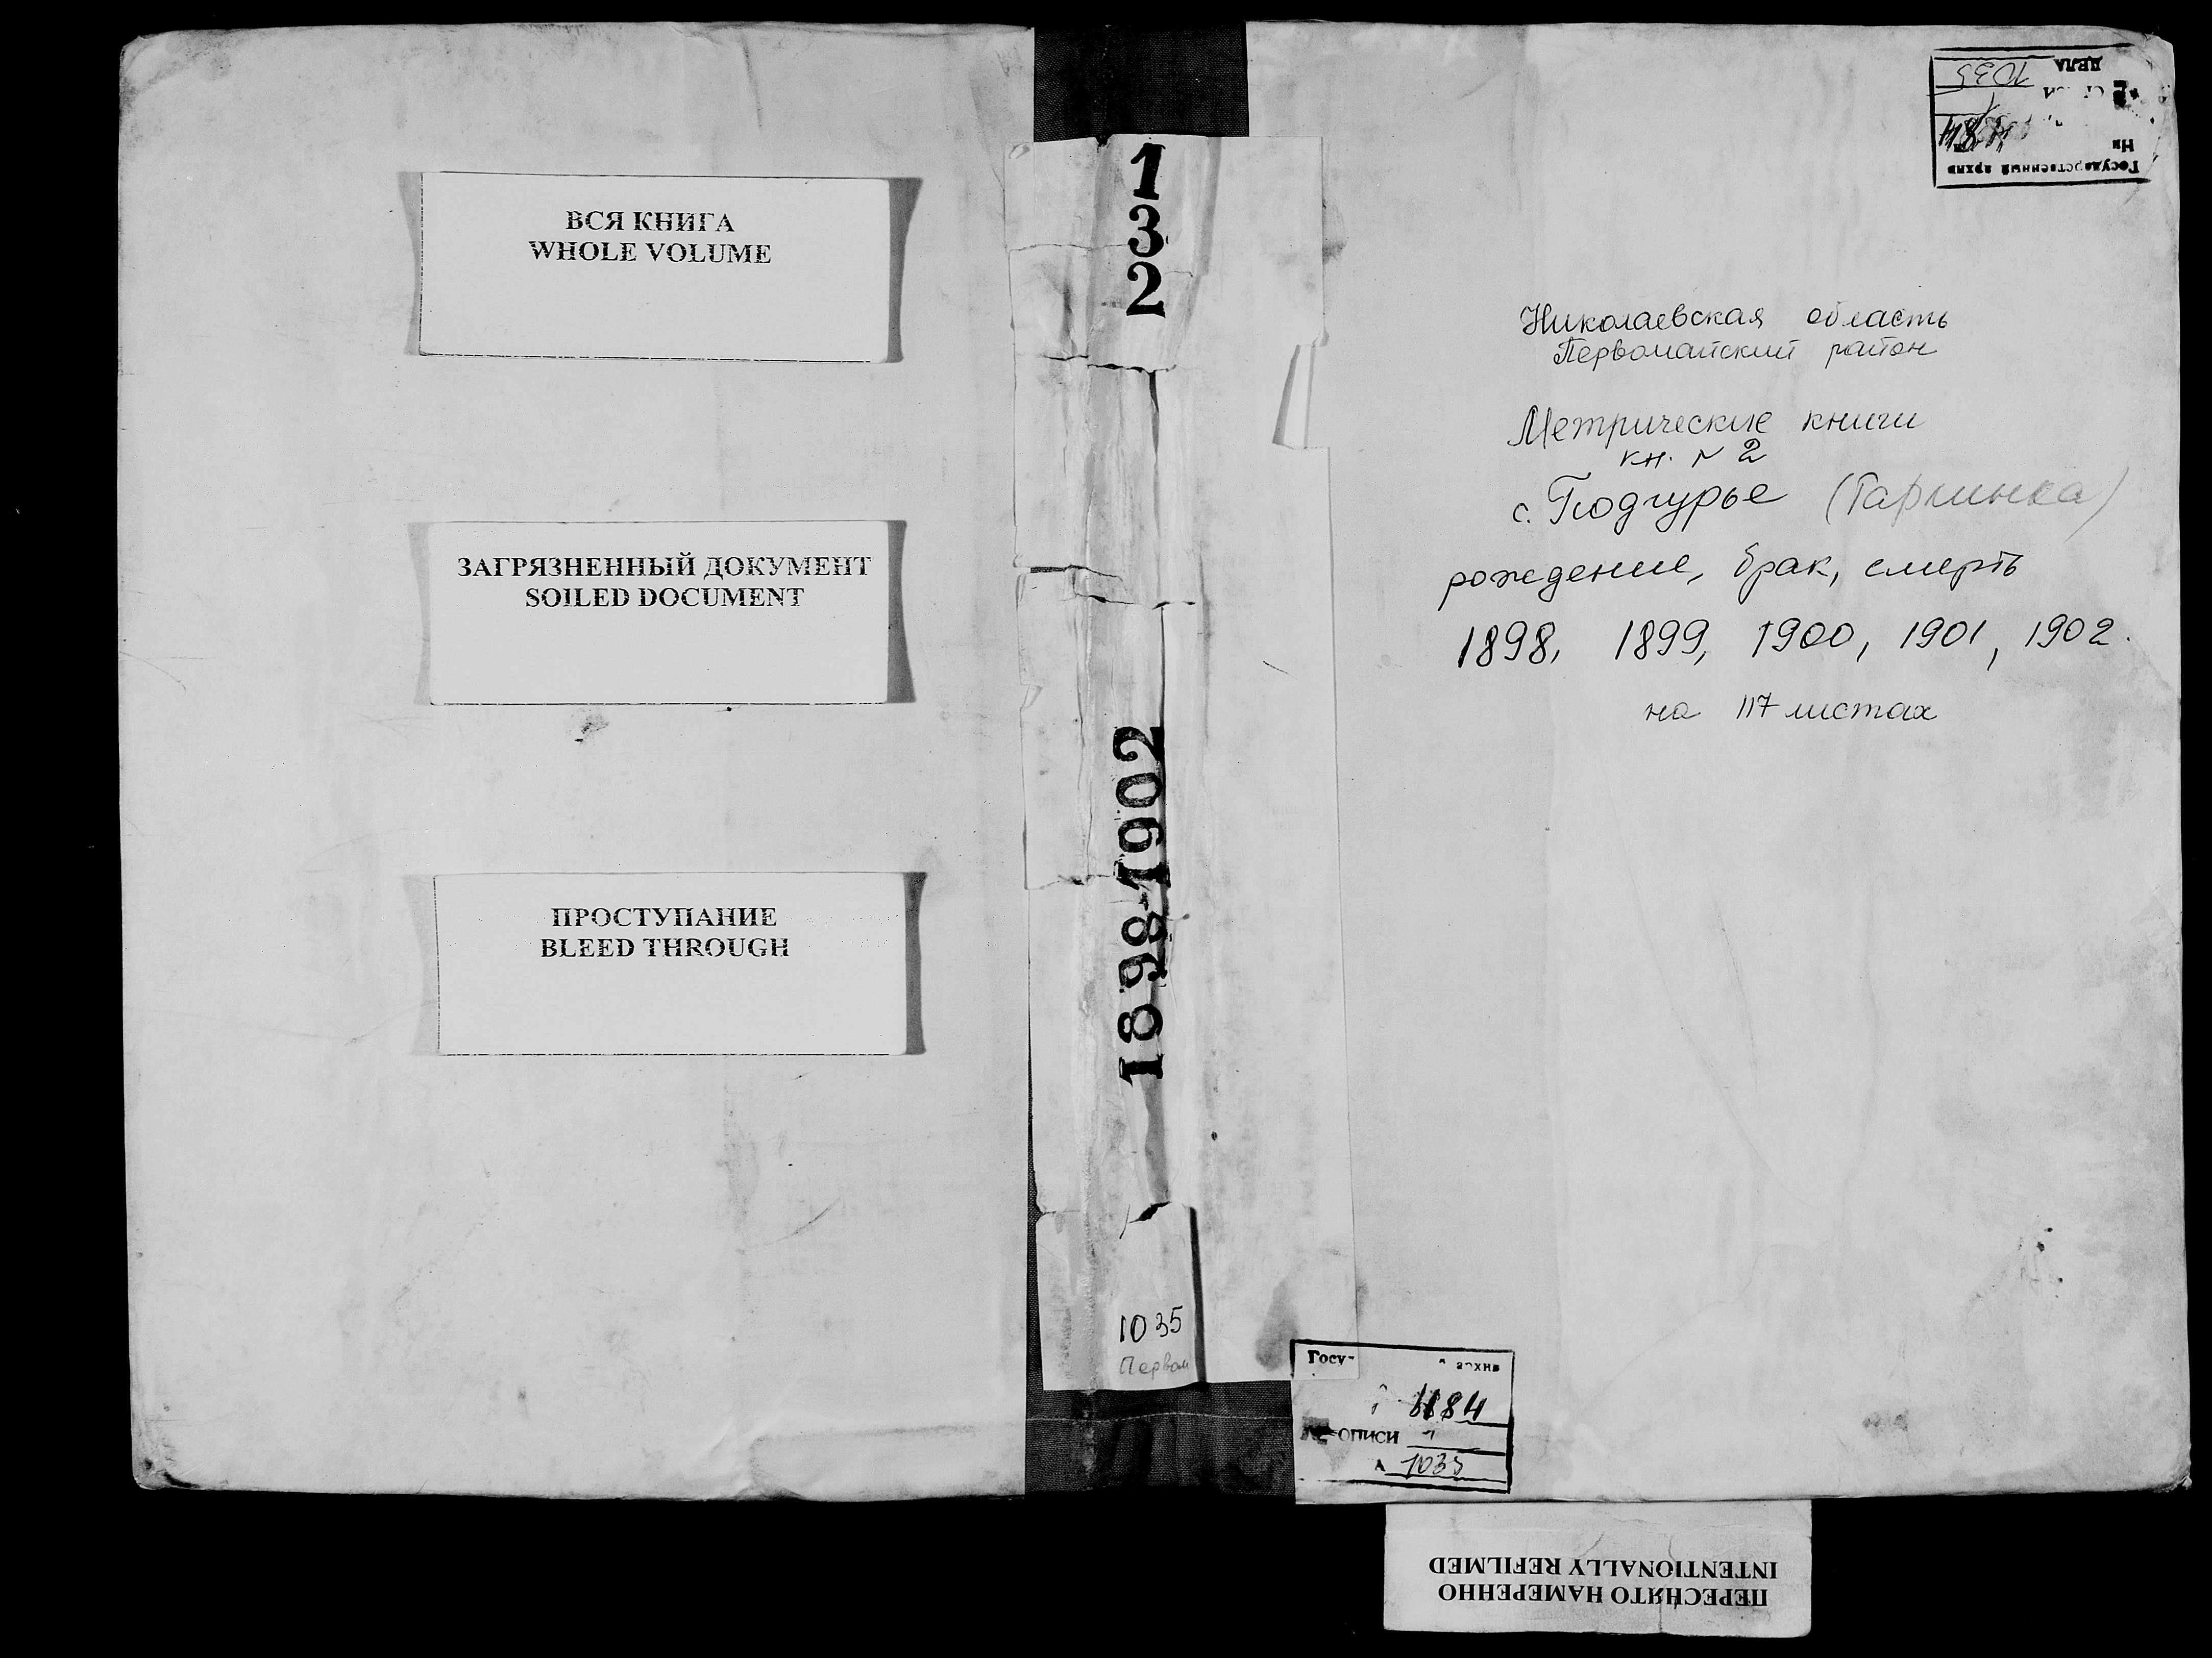 ВСЯ КНИГА
WHOLE VOLUME
ЗАГРЯЗНЕННЫЙ ДОКУМЕНТ
SOILED DOCUMENT
ПРОСТУПАНИЕ
BLEED THROUGH
132
1898-1902
1035
Первом
Государственный архив
ДЕЛА 1035
Николаевская область
Первомайский район
Метрические книги
кн. № 2
с. Подгурье
рождение, брак, смерть
1898, 1899, 1900, 1901, 1902.
на 117 листах
1184
ОПИСИ
1035
ПЕРЕСНЯТО НАМЕРЕННО
INTENTIONALLY REFILMED